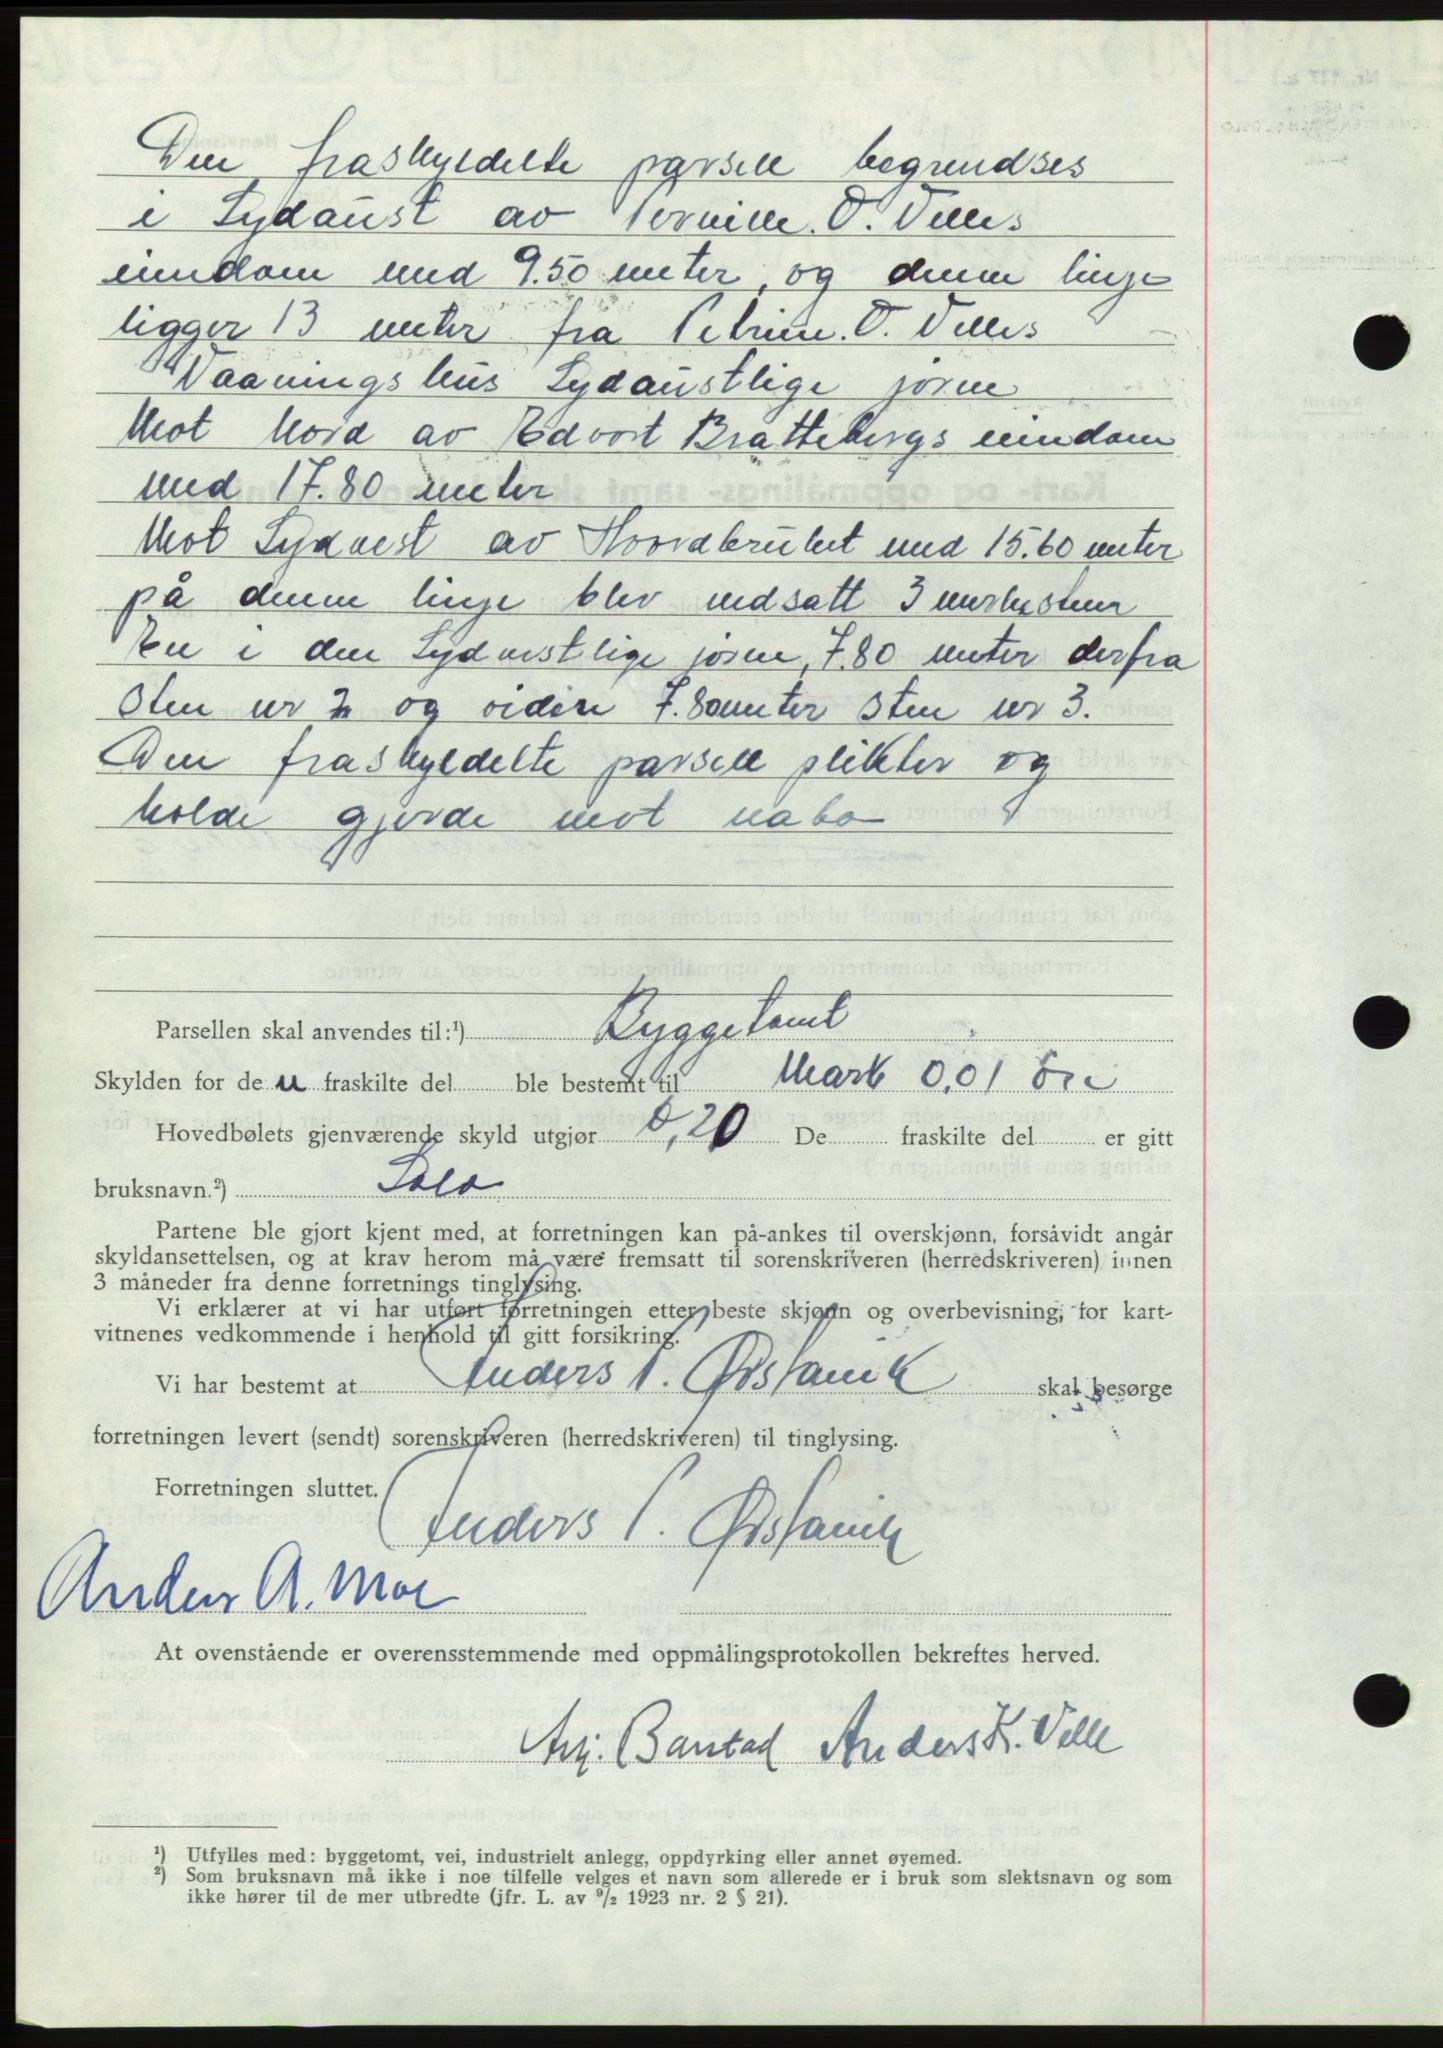 Den fraskyldelte parsell begrendses
i Sydaust av Pernille. O. Velles
eindom med 9.50 meter, og denne linje
ligger 13 meter fra Petrine. O. Velles
Vaaningshus Sydaustlige jørne
Mot Nord av Edvart Brattebergs eindom
med 17.80 meter
Mot Sydvest av Hovedbruket med 15.60 meter
på denne linje blev nedsatt 3 merkestene
En i den Sydvestlige jørne, 7.80 meter derfra
sten nr 2 og videre 7.80 meter sten nr 3.
Den fraskyldelte parsell plikter og
holde gjerde mot nabo
Parsellen skal anvendes til:¹) Byggetomt
Skylden for den fraskilte del ble bestemt til Mark 0,01 Øre
Hovedbølets gjenværende skyld utgjør 0,20 De fraskilte del er gitt
bruksnavn.²) Solo
Partene ble gjort kjent med, at forretningen kan på-ankes til overskjønn, forsåvidt angår
skyldansettelsen, og at krav herom må være fremsatt til sorenskriveren (herredskriveren) innen
3 måneder fra denne forretnings tinglysing.
Vi erklærer at vi har utført forretningen etter beste skjønn og overbevisning, for kart-
vitnenes vedkommende i henhold til gitt forsikring.
Vi har bestemt at Anders P. Ørstavik skal besørge
forretningen levert (sendt) sorenskriveren (herredskriveren) til tinglysing.
Forretningen sluttet.
Anders P. Ørstavik
Anders A. Moe
At ovenstående er overensstemmende med oppmålingsprotokollen bekreftes herved.
Anders K. Velle
¹) Utfylles med: byggetomt, vei, industrielt anlegg, oppdyrking eller annet øyemed.
²) Som bruksnavn må ikke i noe tilfelle velges et navn som allerede er i bruk som slektsnavn og som
ikke hører til de mer utbredte (jfr. L. av ⁹/₂ 1923 nr. 2 § 21).